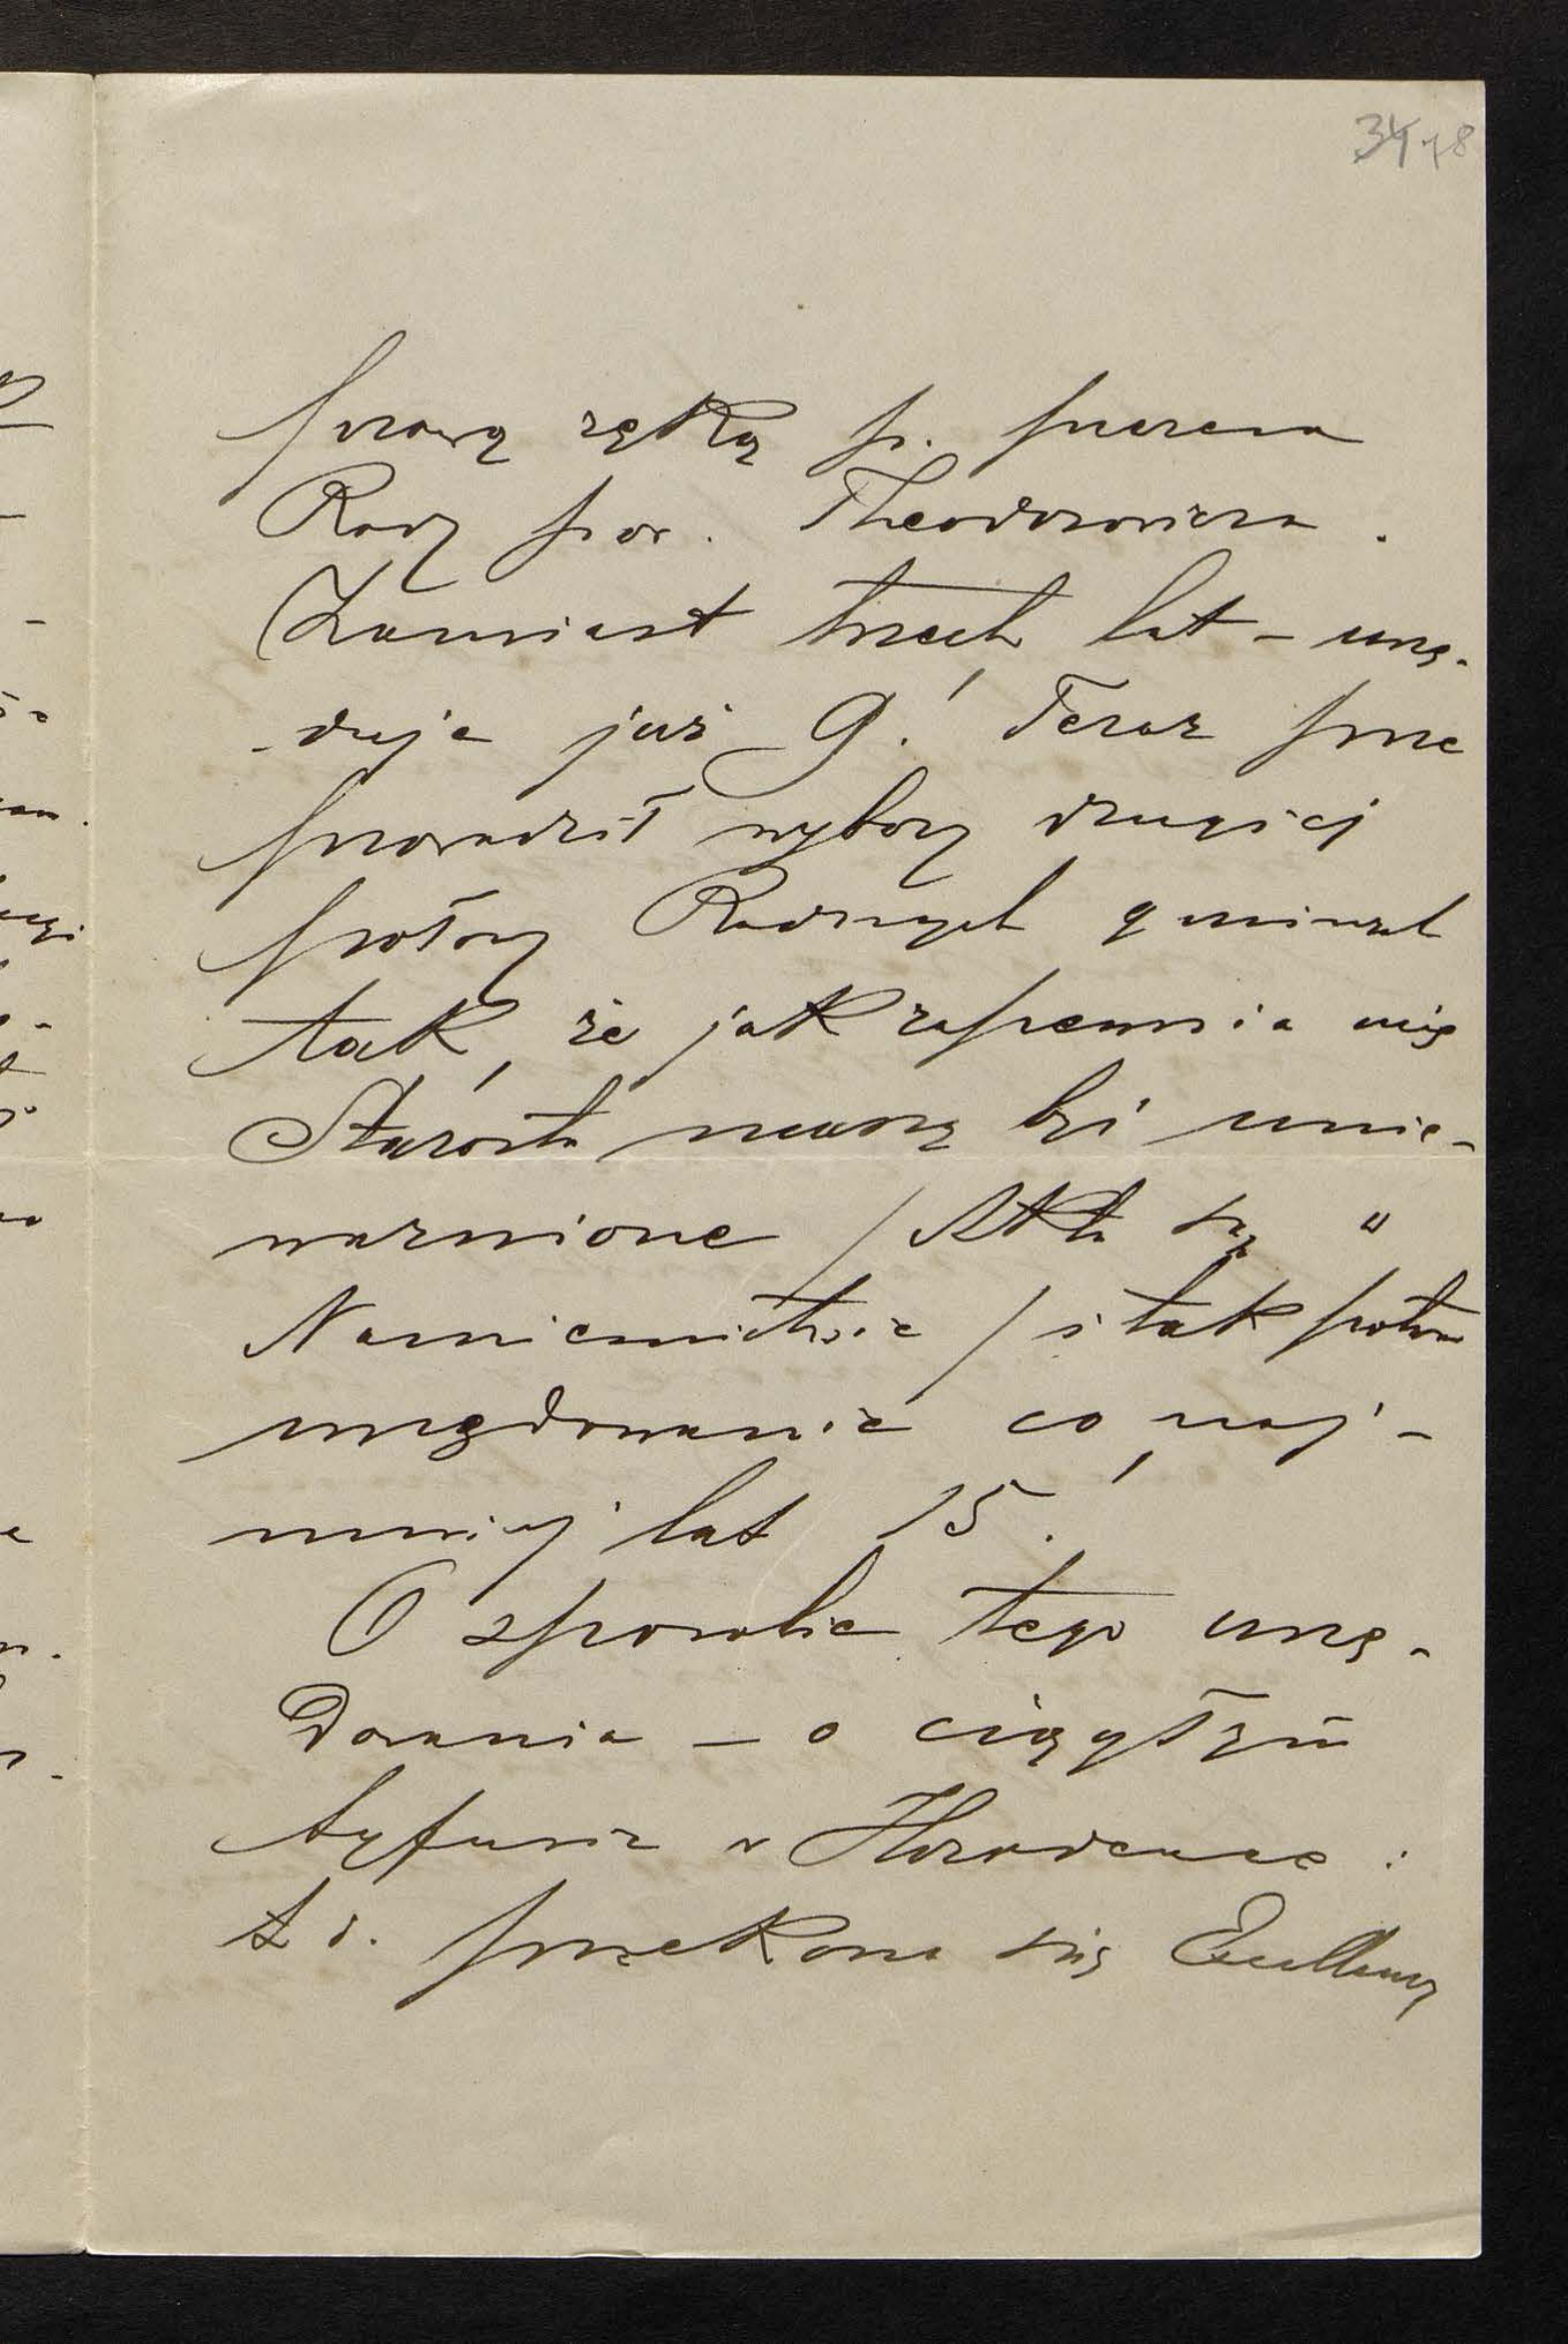 34 78
prawą ręką p. prezesa
Rady pow. Theodorowicza.
Zamiast trzech lat – urzę-
-duje już 9! Teraz prze
prowadził wybory drugiej
połowy Radnych gminnych
tak, że jak zapewnia mię
Starosta muszą być unie-
ważnione /Akta są w
Namiestnictwie/ i tak potrwa
urzędowanie co naj-
mniej lat 15!
O sposobie tego urzę-
dowania – o ciągłym
tyfusie w Horodence i
t d. przekona się Excellency